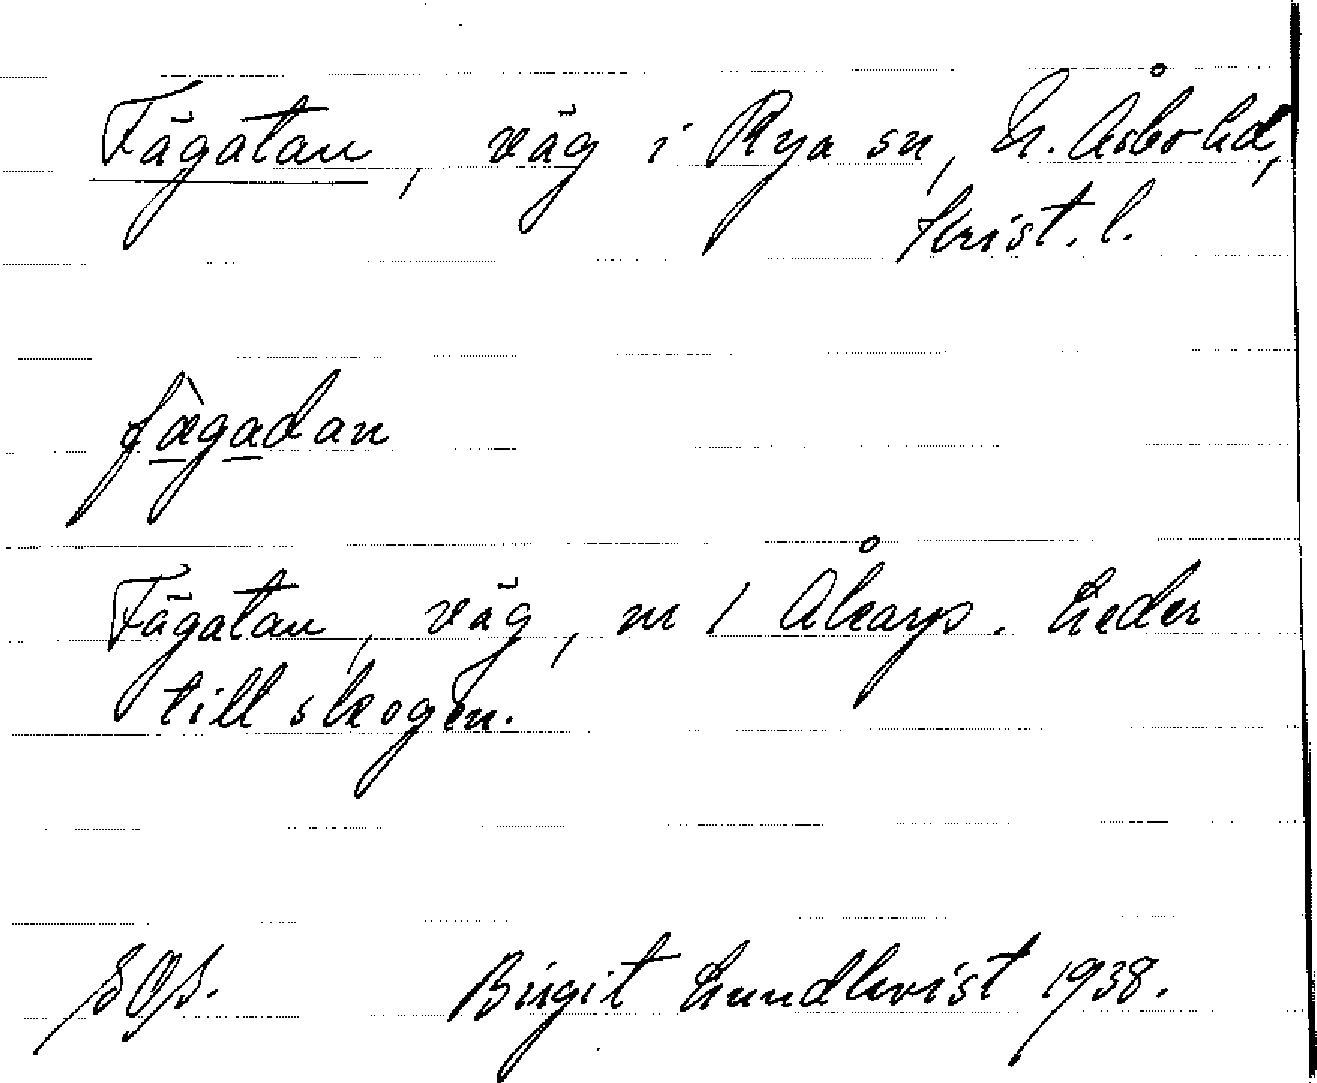 Fägatan, väg i Rya sn, N. Åsbo hd,
Krist. l.
fægadan
Fägatan, väg, nr 1 Åkarp. Leder
till skogen.
SOS. Birgit Lundkvist 1938.